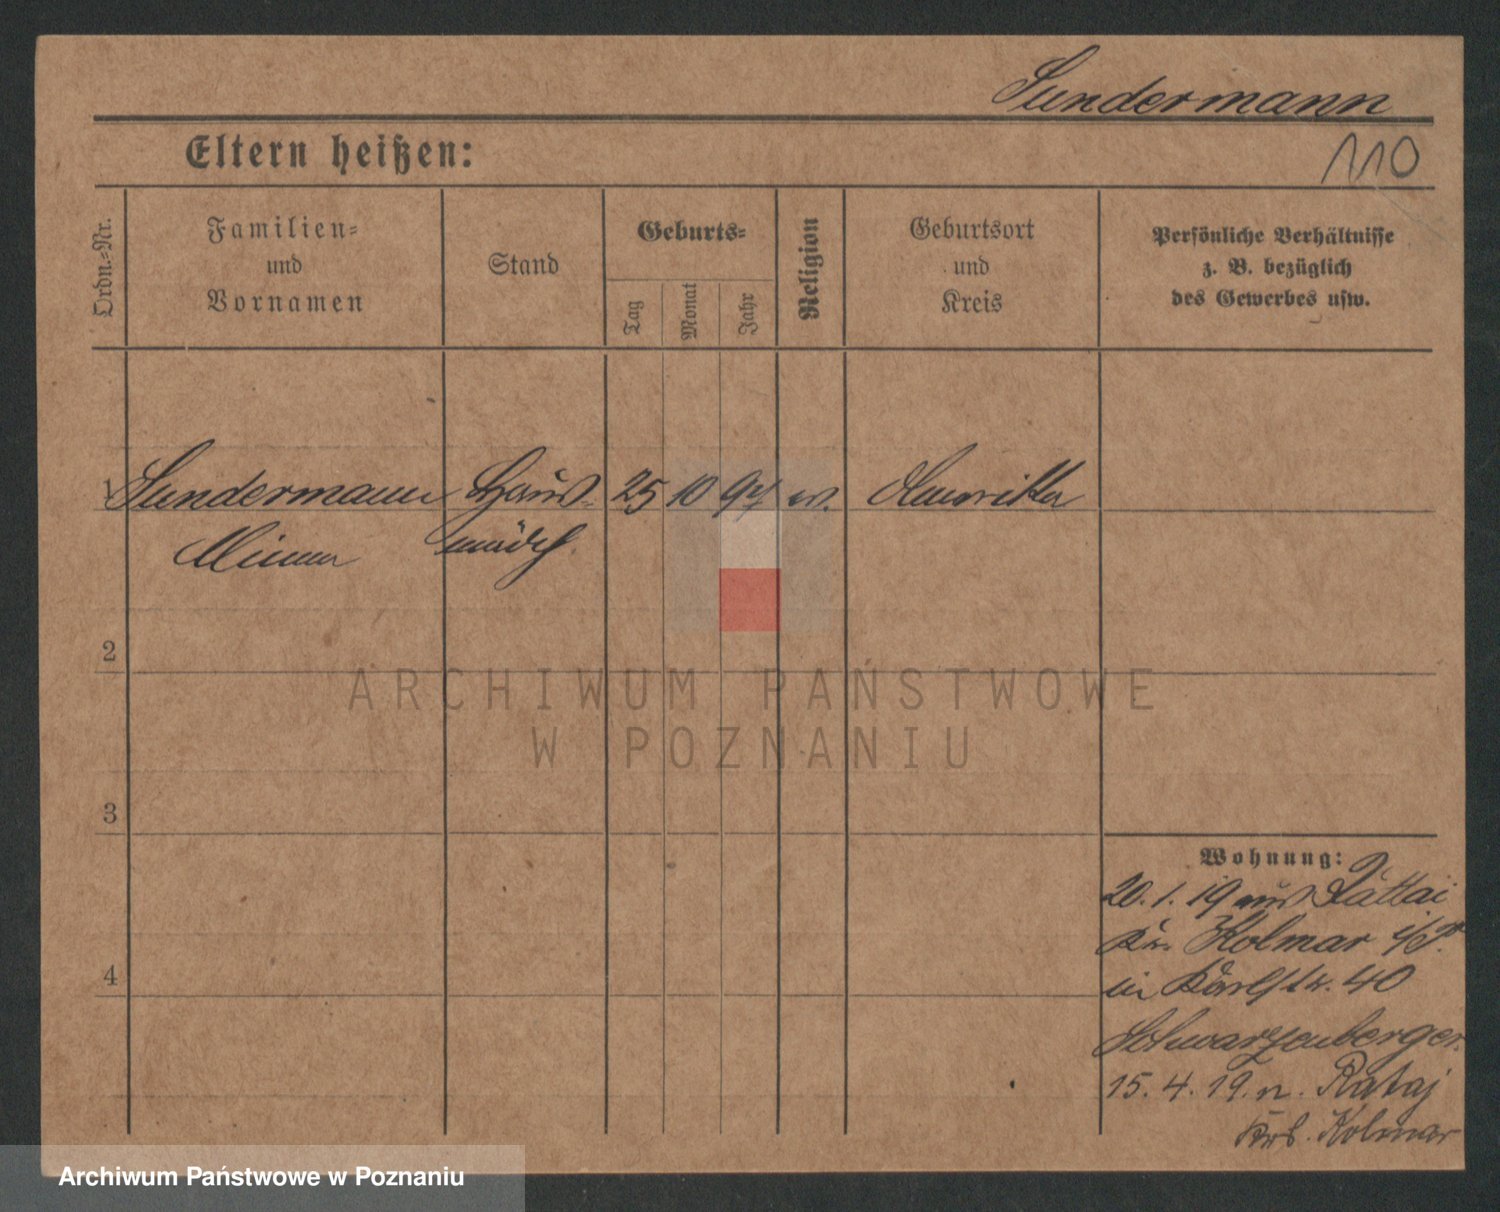 Sundermann
Eltern heißen:
110
Ordn.-Nr.
Familien-
und
Vornamen
Stand
Geburts-
Tag
Monat
Jahr
Religion
Geburtsort
und
Kreis
Persönliche Verhältnisse
z. B. bezüglich
des Gewerbes usw.
1 Sundermann Haus- 25 10 97 ev.
Minna mädch.
2
3
4
Wohnung:
20.1.19 aus Rattai
Kr. Kolmar i/P.
in Karlstr. 40
Schwarzenberger
15.4.19. n. Rataj
Kolmar
ARCHIWUM PAŃSTWOWE
W POZNANIU
Archiwum Państwowe w Poznaniu